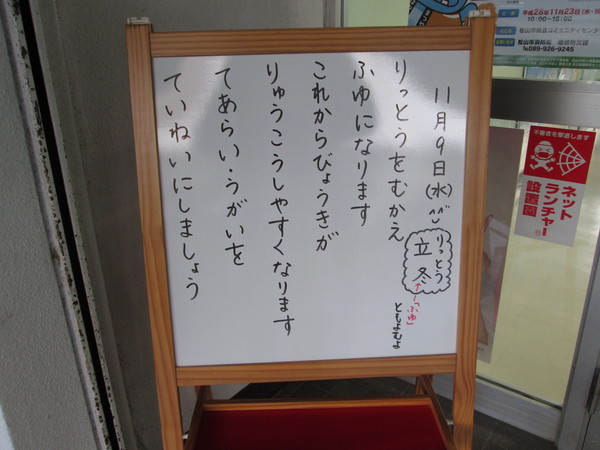 11月9日(水)
りっとう
立冬
「ふゆ」
ともよむよ
りっとうをむかえ
ふゆになります
これからびょうきが
りゅうこうしやすくなります
てあらい・うがいを
ていねいにしましょう
平成28年11月23日(水・祝)
10:00~16:00
☎089-926-9245
不審者を撃退します
ネット
ランチャー
設置園